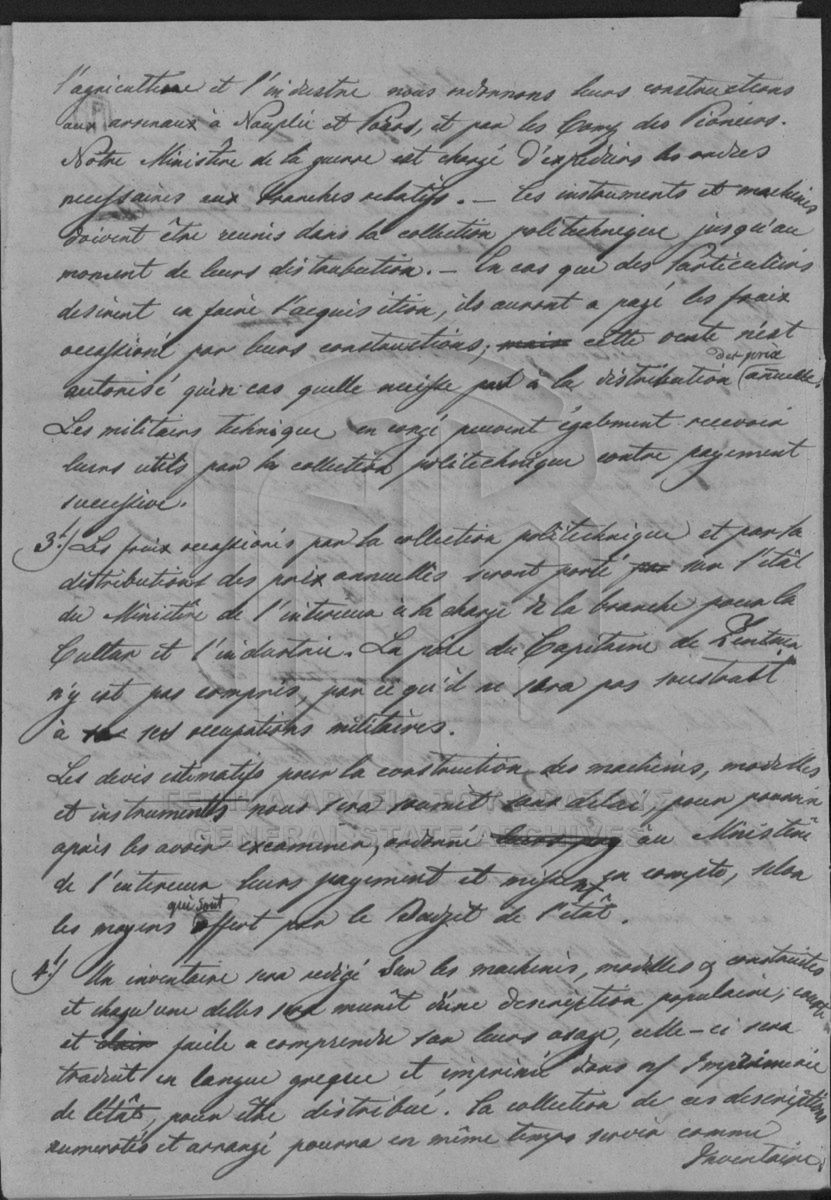 l'agriculture et l'industrie nous ordonnons leurs constructions
aux arsenaux à Nauplie et Poros, et par les Comp des Pioniers.
Nôtre Ministêre de la guerre est chargé d'expedier les ordres
necessaires aux branches relatifs. — Les instruments et machines
doivent être reunis dans la collection politechnique jusqu'au
moment de leurs distribution. — En cas que des Particuliers
desirent en faire l'acquisition, ils auront a payé les fraix
occasioné par leurs constructions; mais cette vente n'est
autorisé qu'en cas quelle à la distribution des prix (annuelle.
Les militairs technique en congé peuvent également recevoir
leurs utils par la collection politechnique contre payement
sucessive.
3.) Les fraix occasionés par la collection politechnique et par la
distributions des prix annuelles seront porté par sur l'etât
du Ministêre de l'interieur à la charge de la branche pour la
Cultur et l'industrie. La paie du Capitaine de Zentner
n'y est pas compris, par ce qu'il ne sera pas soustrait
à ses occupations militaires.
Les devis estimatifs pour la construction des machines, modelles
et instruments nous sera soumit sans delai, pour pouvoir
après les avoir examiner, ordonné leurs pay au Ministêre
de l'interieur leurs payement et mise en compte, selon
les moyens qui sont offert par le Budjet de l'etât.
4.) Un inventaire sera redigé sur les machines, modelles construites
et chaqu'une delles sera munit d'une description populaire, courte
et clair facile a comprendre sur leurs usage, celle-ci sera
traduit en langue grecque et imprimé dans Imprimerie
de l'etât, pour être distribué. La collection de ces descriptions
numerotés et arrangé pourra en même temps servir comme
Inventaire.
ΓΕΝΙΚΑ ΑΡΧΕΙΑ ΤΟΥ ΚΡΑΤΟΥΣ
GENERAL STATE ARCHIVES